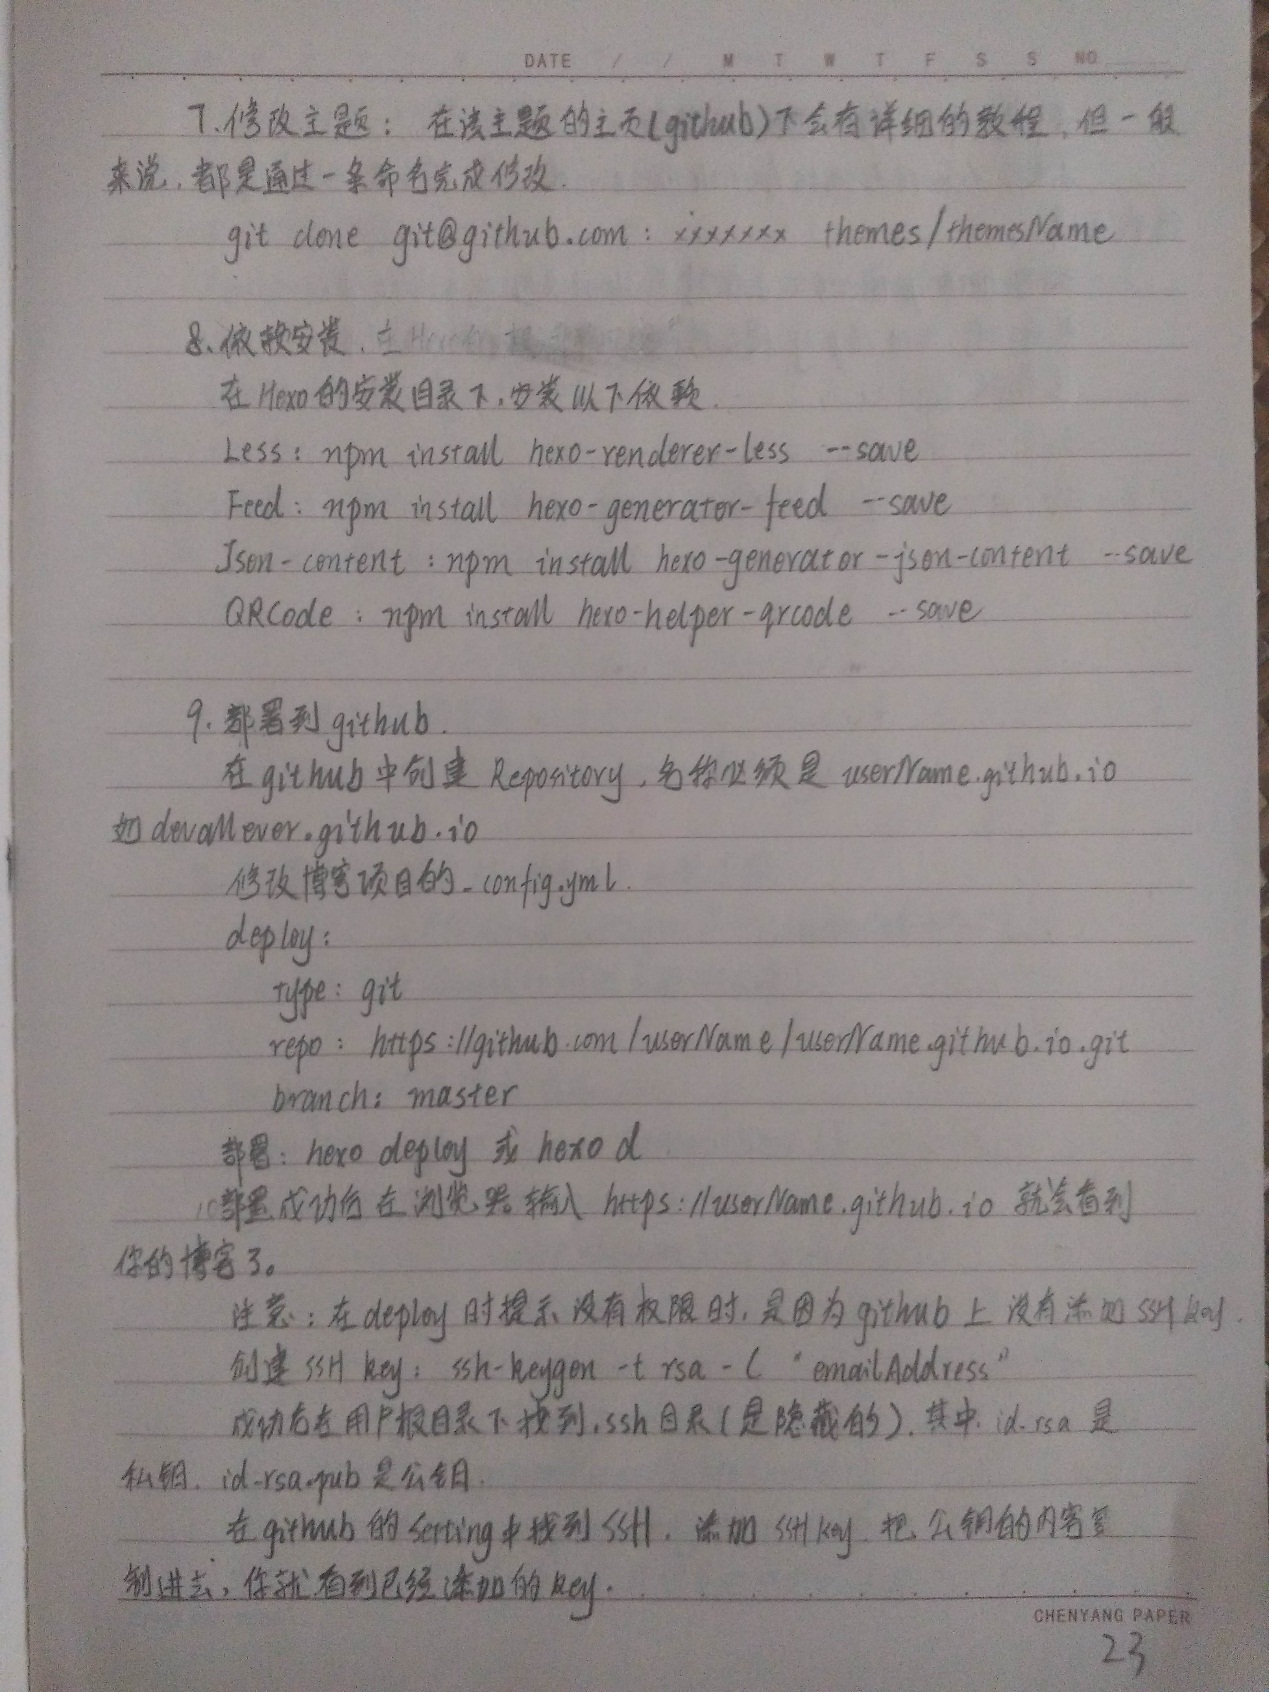 DATE / / M T W T F S S NO
7.修改主题：在该主题的主页(github)下会有详细的教程，但一般
来说，都是通过一条命令完成修改.
git clone git@github.com: xxxxxxx themes/themesName
8.依赖安装.在Hexo
在Hexo的安装目录下,安装以下依赖.
Less: npm install hexo-renderer-less --save
Feed: npm install hexo-generator-feed --save
Json-content: npm install hexo-generator-json-content --save
QRCode: npm install hexo-helper-qrcode --save
9.部署到github.
在github中创建Repository,名称必须是userName.github.io
如devallever.github.io
修改博客项目的_config.yml.
deploy:
type: git
repo: https://github.com/userName/userName.github.io.git
branch: master
部署: hexo deploy 或 hexo d
部署成功后在浏览器输入https://userName.github.io 就会看到
你的博客了。
注意：在deploy时提示没有权限时,是因为github上没有添加SSH key.
创建SSH key: ssh-keygen -t rsa -C "emailAddress"
成功后在用户根目录下找到.ssh目录(是隐藏的),其中id-rsa是
私钥. id-rsa.pub是公钥.
在github的Setting中找到SSH,添加SSH key,把公钥的内容复
制进去,你就看到已经添加的key.
CHENYANG PAPER
23